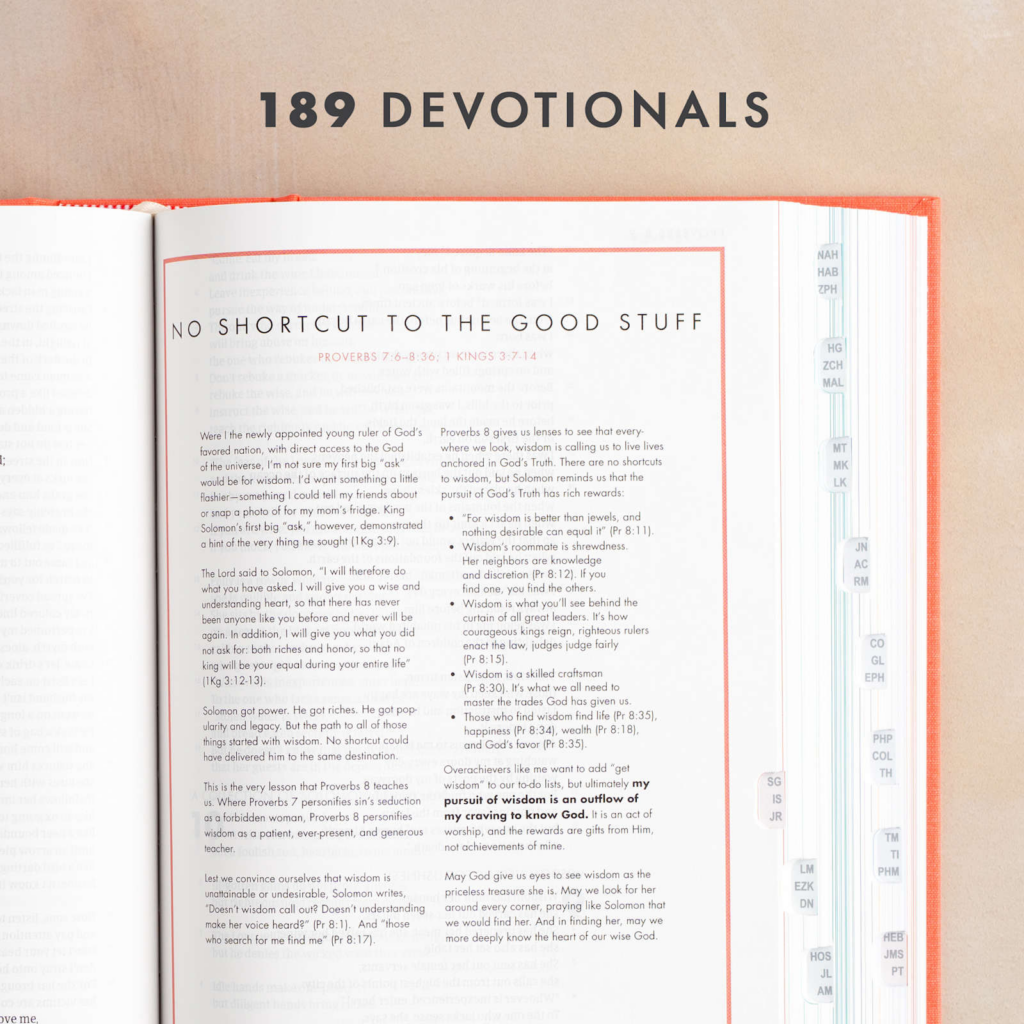 189 DEVOTIONALS
NO SHORTCUT TO THE GOOD STUFF
PROVERBS 7:6–8:36; 1 KINGS 3:7-14
Were I the newly appointed young ruler of God's
favored nation, with direct access to the God
of the universe, I'm not sure my first big "ask"
would be for wisdom. I'd want something a little
flashier—something I could tell my friends about
or snap a photo of for my mom's fridge. King
Solomon's first big "ask," however, demonstrated
a hint of the very thing he sought (1Kg 3:9).
The Lord said to Solomon, "I will therefore do
what you have asked. I will give you a wise and
understanding heart, so that there has never
been anyone like you before and never will be
again. In addition, I will give you what you did
not ask for: both riches and honor, so that no
king will be your equal during your entire life"
(1Kg 3:12-13).
Solomon got power. He got riches. He got pop-
ularity and legacy. But the path to all of those
things started with wisdom. No shortcut could
have delivered him to the same destination.
This is the very lesson that Proverbs 8 teaches
us. Where Proverbs 7 personifies sin's seduction
as a forbidden woman, Proverbs 8 personifies
wisdom as a patient, ever-present, and generous
teacher.
Lest we convince ourselves that wisdom is
unattainable or undesirable, Solomon writes,
"Doesn't wisdom call out? Doesn't understanding
make her voice heard?" (Pr 8:1). And "those
who search for me find me" (Pr 8:17).
Proverbs 8 gives us lenses to see that every-
where we look, wisdom is calling us to live lives
anchored in God's Truth. There are no shortcuts
to wisdom, but Solomon reminds us that the
pursuit of God's Truth has rich rewards:
• "For wisdom is better than jewels, and
nothing desirable can equal it" (Pr 8:11).
• Wisdom's roommate is shrewdness.
Her neighbors are knowledge
and discretion (Pr 8:12). If you
find one, you find the others.
• Wisdom is what you'll see behind the
curtain of all great leaders. It's how
courageous kings reign, righteous rulers
enact the law, judges judge fairly
(Pr 8:15).
• Wisdom is a skilled craftsman
(Pr 8:30). It's what we all need to
master the trades God has given us.
• Those who find wisdom find life (Pr 8:35),
happiness (Pr 8:34), wealth (Pr 8:18),
and God's favor (Pr 8:35).
Overachievers like me want to add "get
wisdom" to our to-do lists, but ultimately my
pursuit of wisdom is an outflow of
my craving to know God. It is an act of
worship, and the rewards are gifts from Him,
not achievements of mine.
May God give us eyes to see wisdom as the
priceless treasure she is. May we look for her
around every corner, praying like Solomon that
we would find her. And in finding her, may we
more deeply know the heart of our wise God.
SG
IS
JR
LM
EZK
DN
HOS
JL
AM
NAH
HAB
ZPH
HG
ZCH
MAL
MT
MK
LK
JN
AC
RM
CO
GL
EPH
PHP
COL
TH
TM
TI
PHM
HEB
JMS
PT